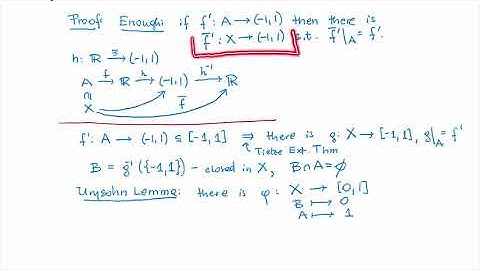 Proof: Enough: if f': A → (-1,1) then there is
f̄': X → (-1,1) s.t. f̄'|_A = f'.
h: ℝ ≅→ (-1,1)
A f→ ℝ h→ (-1,1) h⁻¹→ ℝ
∩
X f̄
f': A → (-1,1) ⊆ [-1,1] ⇒ there is g: X → [-1,1], g|_A = f'
↑ Tietze Ext. Thm
B = g⁻¹({-1,1}) - closed in X, B∩A = ∅
Urysohn Lemma: there is φ: X → [0,1]
B ↦ 0
A ↦ 1